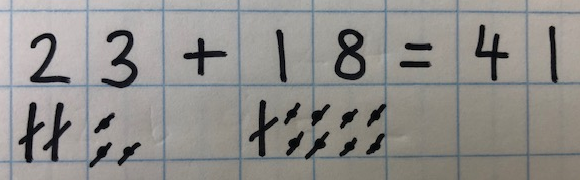 23 + 18 = 41